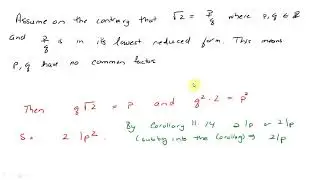 Assume on the contrary that √2 = p/q where p,q ∈ ℤ
and p/q is in its lowest reduced form. This means
p,q have no common factor
Then q√2 = p and q²·2 = p²
So 2 | p². By Corollary 11.14 2|p or 2|p
(subbing into the Corollary) ⇒ 2|p